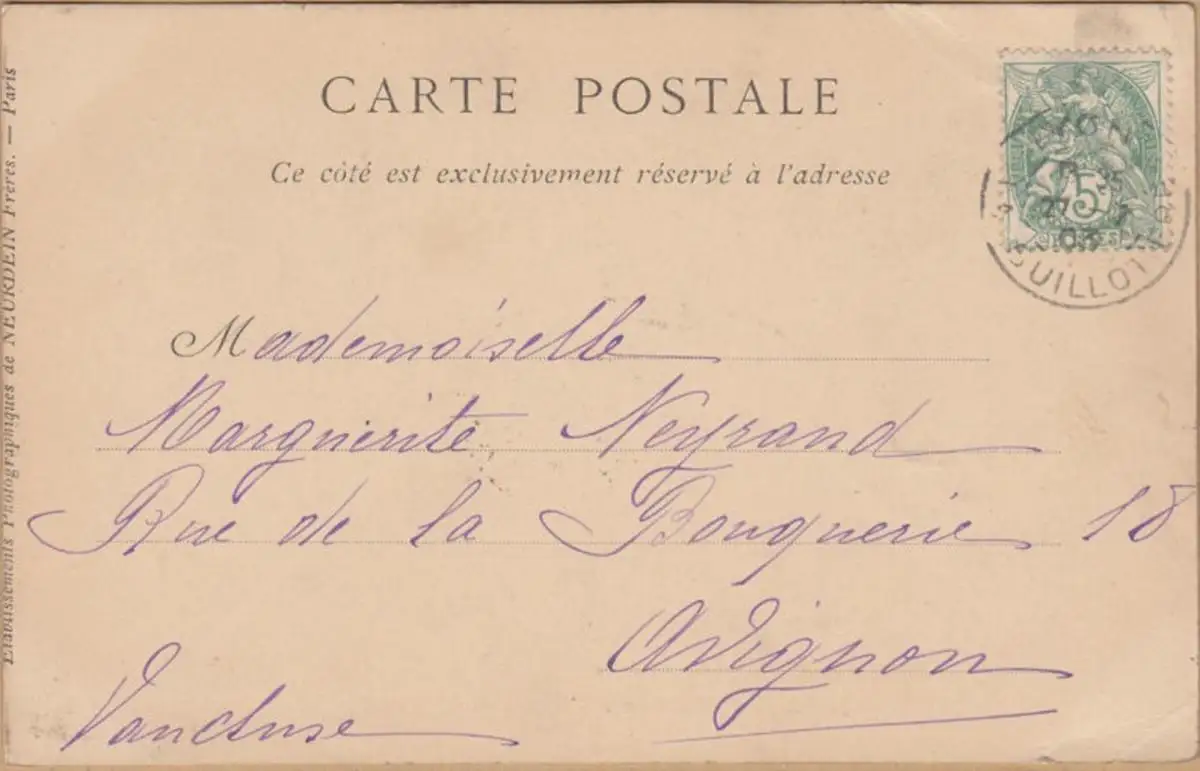 CARTE POSTALE
Ce côté est exclusivement réservé à l'adresse
Etablissements Photographiques de NEURDEIN Frères. — Paris
5
27
03
Mademoiselle
Marguerite Neyrand
Rue de la Bouquerie 18
Avignon
Vaucluse